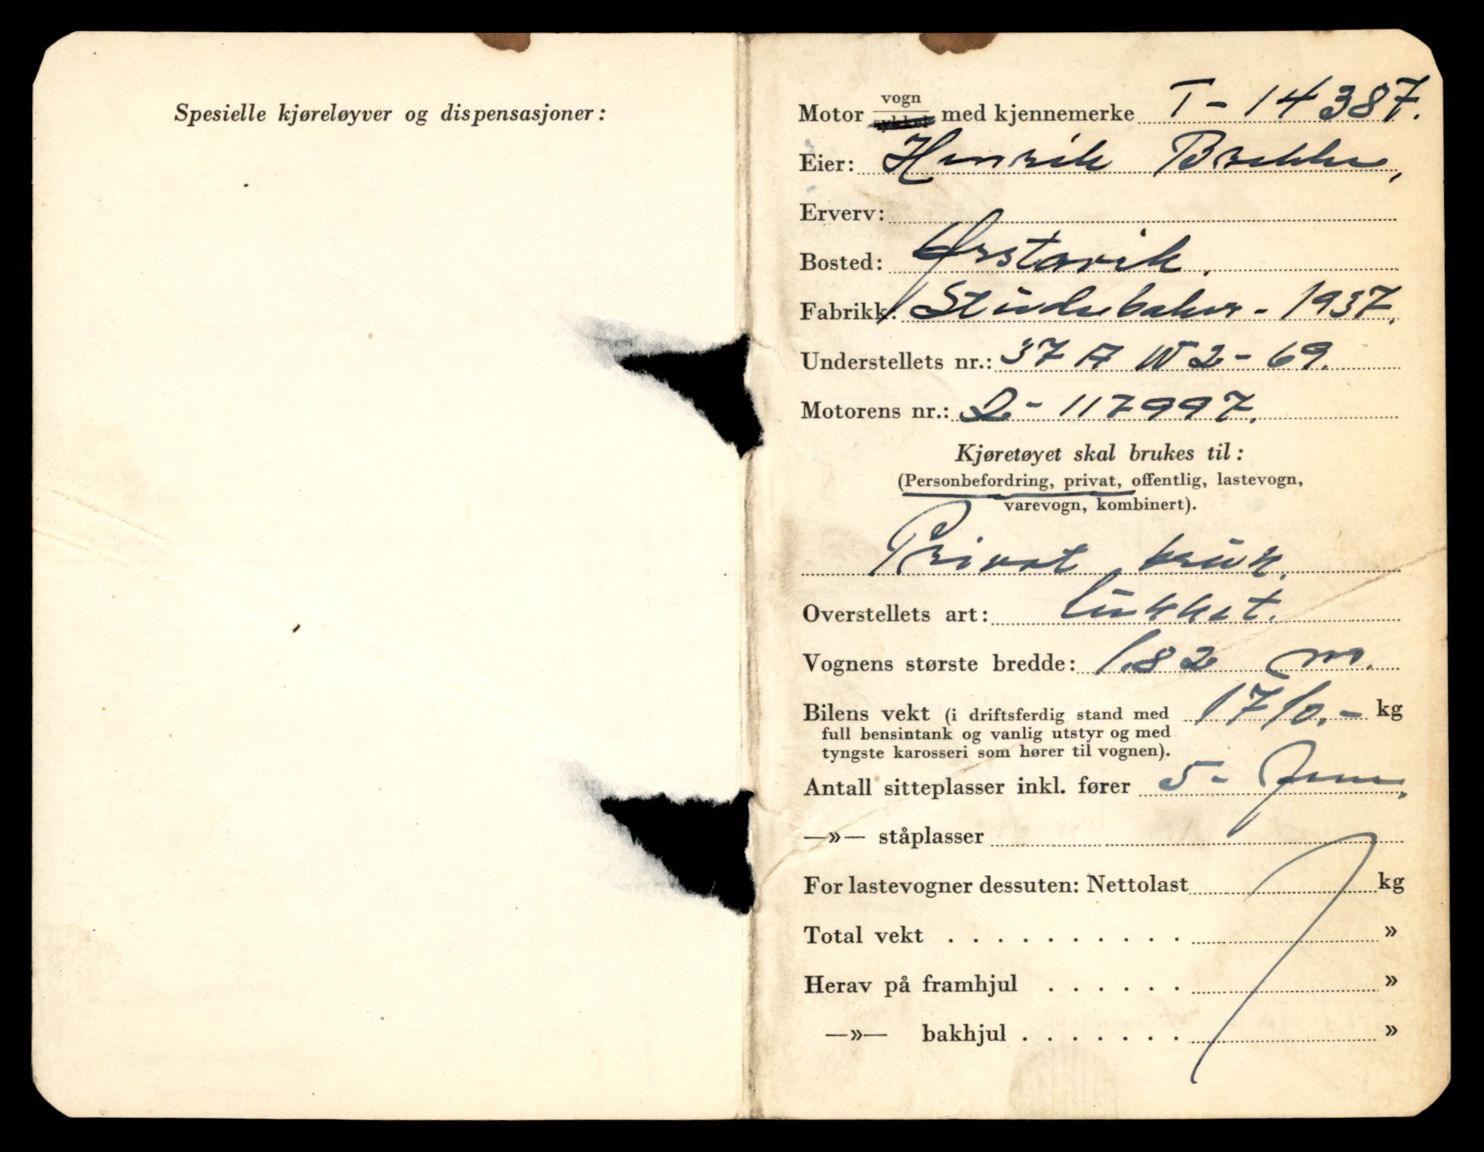 Spesielle kjøreløyver og dispensasjoner:
Motor vogn sykkel med kjennemerke T-14387.
Eier: Henrik Brekke,
Erverv:
Bosted: Ørstavik.
Fabrikk: Studebaker - 1937.
Understellets nr.: 37 A W 2-69.
Motorens nr.: D-117997.
Kjøretøyet skal brukes til:
(Personbefordring, privat, offentlig, lastevogn,
varevogn, kombinert).
Privat bruk.
Overstellets art: lukket.
Vognens største bredde: 1.82 m.
Bilens vekt (i driftsferdig stand med 1710.- kg
full bensintank og vanlig utstyr og med
tyngste karosseri som hører til vognen).
Antall sitteplasser inkl. fører 5- fem,
—»— ståplasser
For lastevogner dessuten: Nettolast kg
Total vekt . . . . . . . . . . »
Herav på framhjul . . . . . . »
—»— bakhjul . . . . . . . »